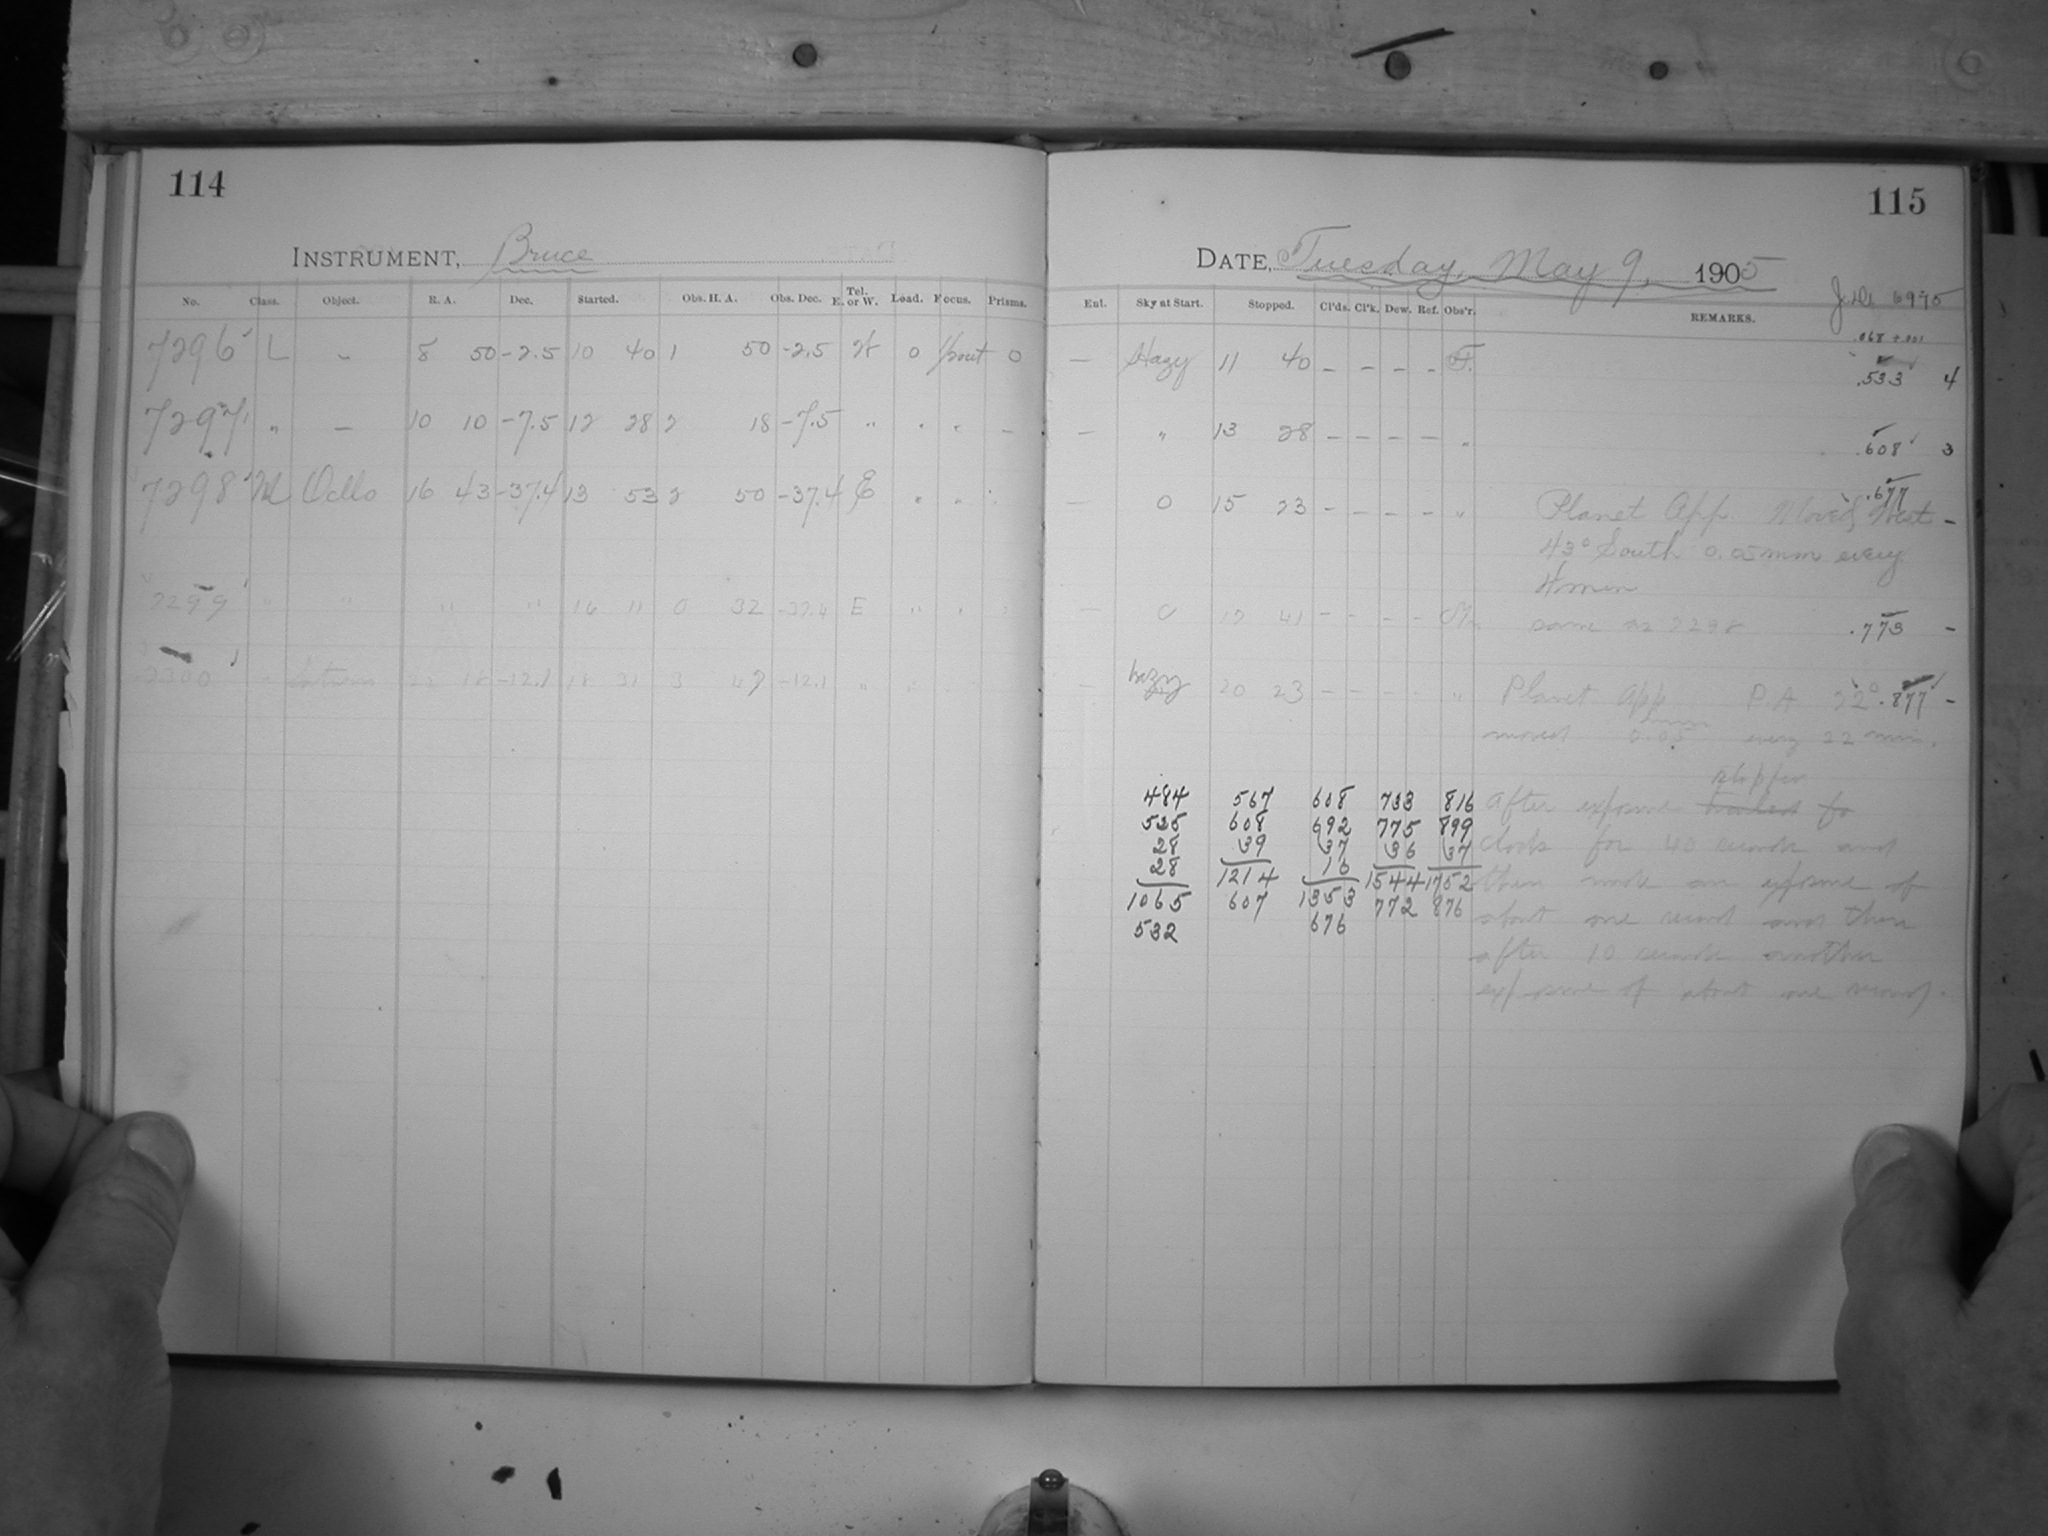 114
INSTRUMENT, Bruce
No. Class. Object. R. A. Dec. Started. Obs. H. A. Obs. Dec. Tel. E. or W. Load. Focus. Prisms.
7296 L " 8 50 -2.5 10 40 1 50 -2.5 W 0 0
7297 " — 10 10 -7.5 12 28 2 18 -7.5 " " " —
7298 M Ocllo 16 43 -37.4 13 53 2 50 -37.4 E " "
7299 " " " " 16 11 0 32 -37.4 E " "
7300 " Saturn 22 18 -12.1 18 31 3 47 -12.1 "
115
DATE, Tuesday, May 9, 1905
Ent. Sky at Start. Stopped. Cl'ds. Cl'k. Dew. Ref. Obs'r. REMARKS.
6975
.068 + .001
— Hazy 11 40 — — — — F. .533 4
— " 13 28 — — — — " .608 3
— 0 15 23 — — — — " Planet App. Moved West .677 -
43° South 0.05mm every
4 min
— 0 17 41 - - - - same as 7298 .773 -
— hazy 20 23 - - - - " Planet App P.A 72° .877 -
moved 0.05 mm every 22 min.
stopped
484 567 608 733 816 After exposure trailed fo
525 608 692 775 899 clock for 40 seconds and
28 39 37 36 37
28 1214 16 1544 1752 then made an exposure of
1065 607 1353 772 876 about one second and then
532 676
after 10 seconds another
exposure of about one second.